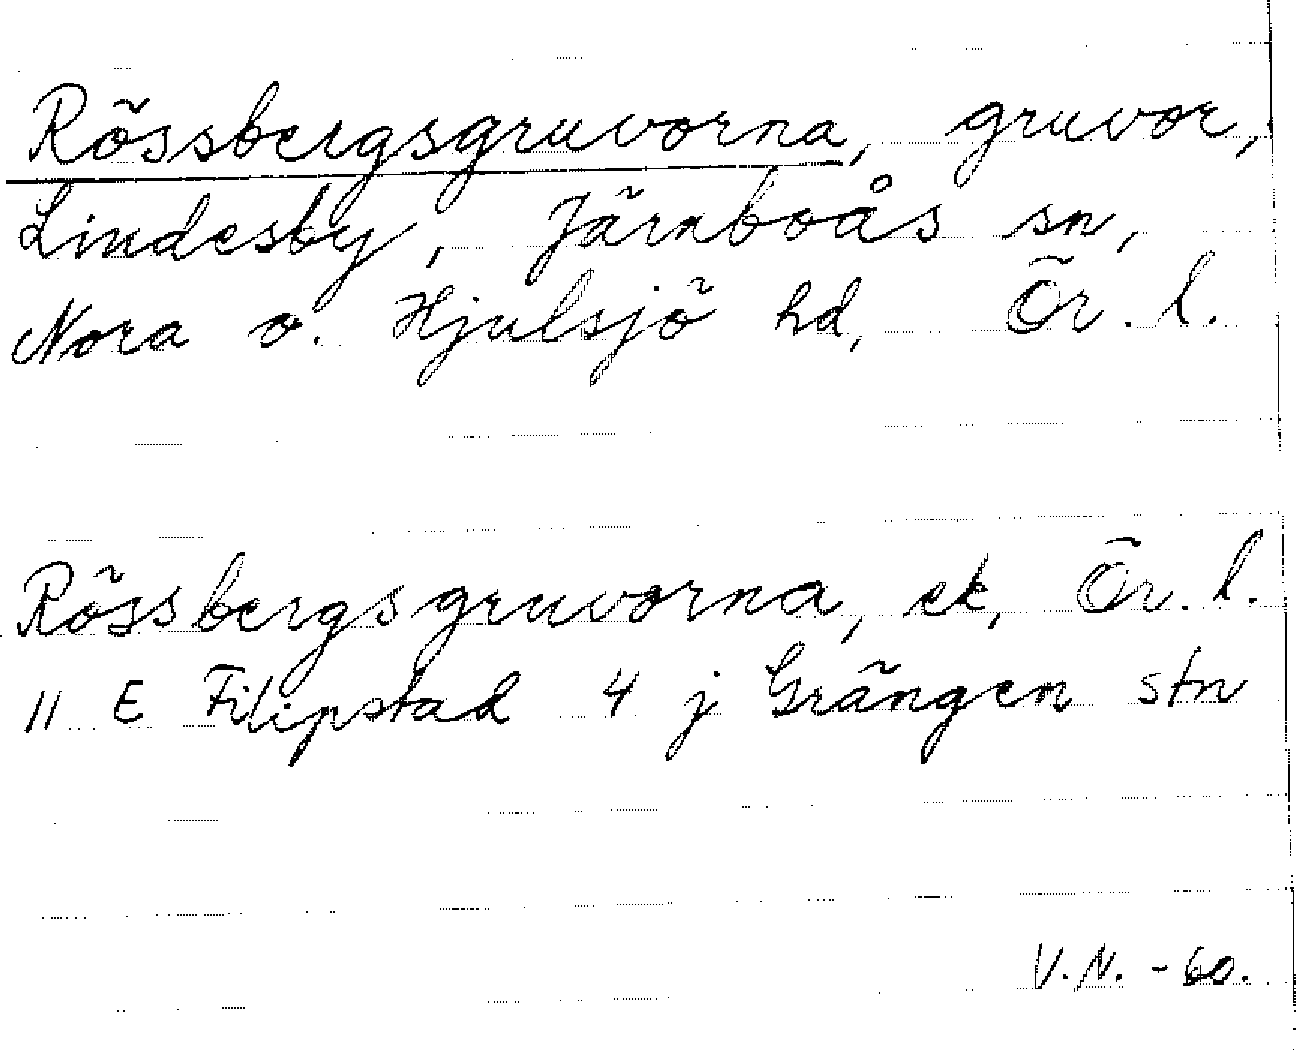 Rössbergsgruvorna, gruvor,
Lindesby, Järnboås sn,
Nora o. Hjulsjö hd, Ör. l.
Rössbergsgruvorna, ek, Ör. l.
11 E Filipstad 4 j Grängen stn
V.N. -60.